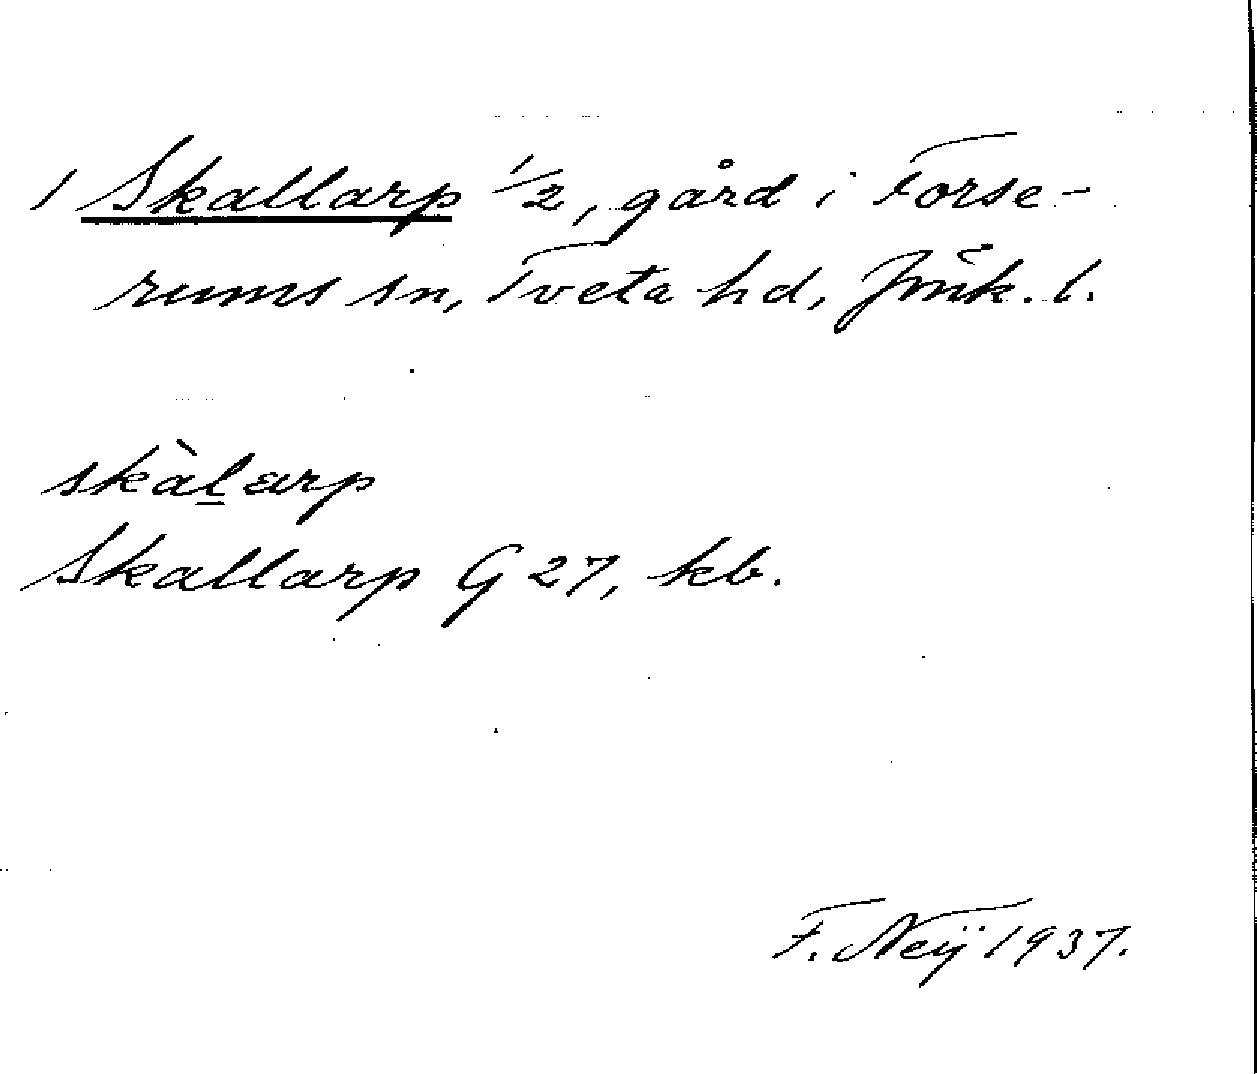 1 Skallarp 1/2, gård i Forse-
rums sn, Tveta hd, Jönk. l.
skàl̲arp
Skallarp G 27, kb.
F. Neij 1937.